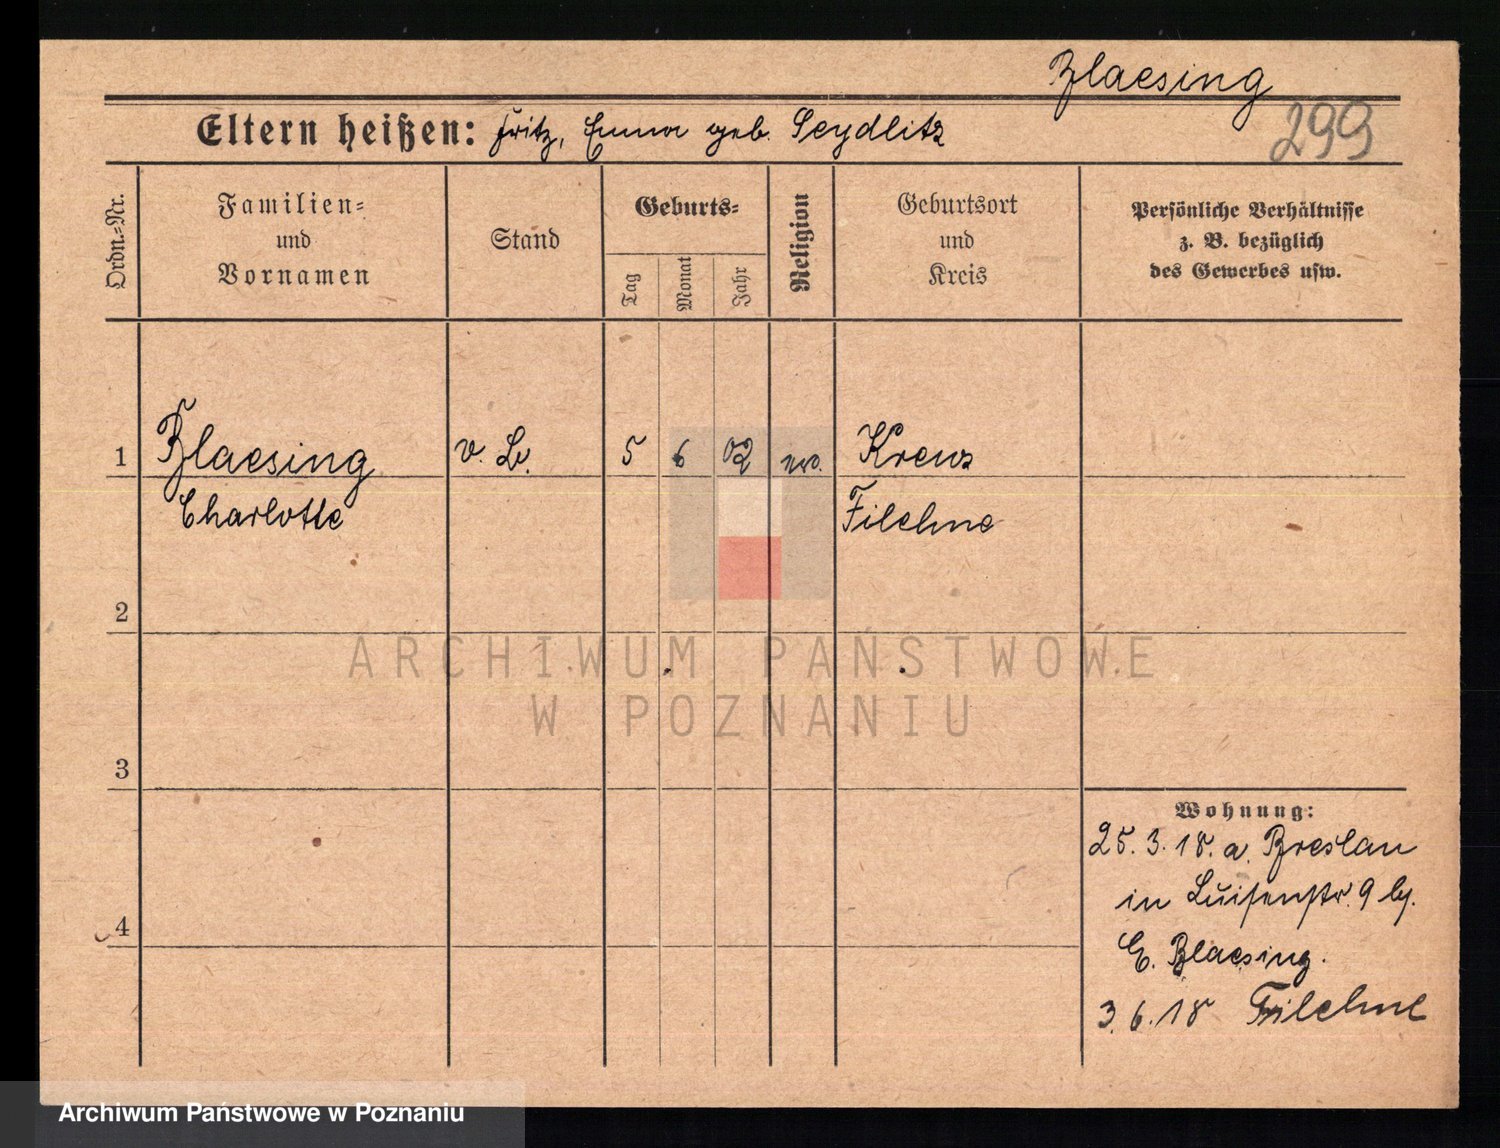 Blaesing
299
Eltern heißen: Fritz, Emma geb. Seydlitz
Ordn.-Nr.
Familien-
und
Vornamen
Stand
Geburts-
Tag
Monat
Jahr
Religion
Geburtsort
und
Kreis
Persönliche Verhältnisse
z. B. bezüglich
des Gewerbes usw.
1
Blaesing
5
6
02
Kreuz
Charlotte
Filehne
2
ARCHIWUM PAŃSTWOWE
W POZNANIU
3
Wohnung:
25. 3. 18. a. Breslau
in Luisenstr. 9 bj.
4
E. Blaesing.
3. 6. 18 Filehne
Archiwum Państwowe w Poznaniu